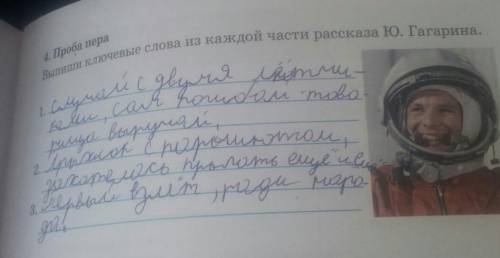 4. Проба пера
Выпиши ключевые слова из каждой части рассказа Ю. Гагарина.
1. Случай с двумя лётчи-
ками, сам погибай-това-
рища выручай,
2. Прыжок с парашютом,
захотелось прыгать ещё и ещё
3. Первый взлёт, ради наро-
да.